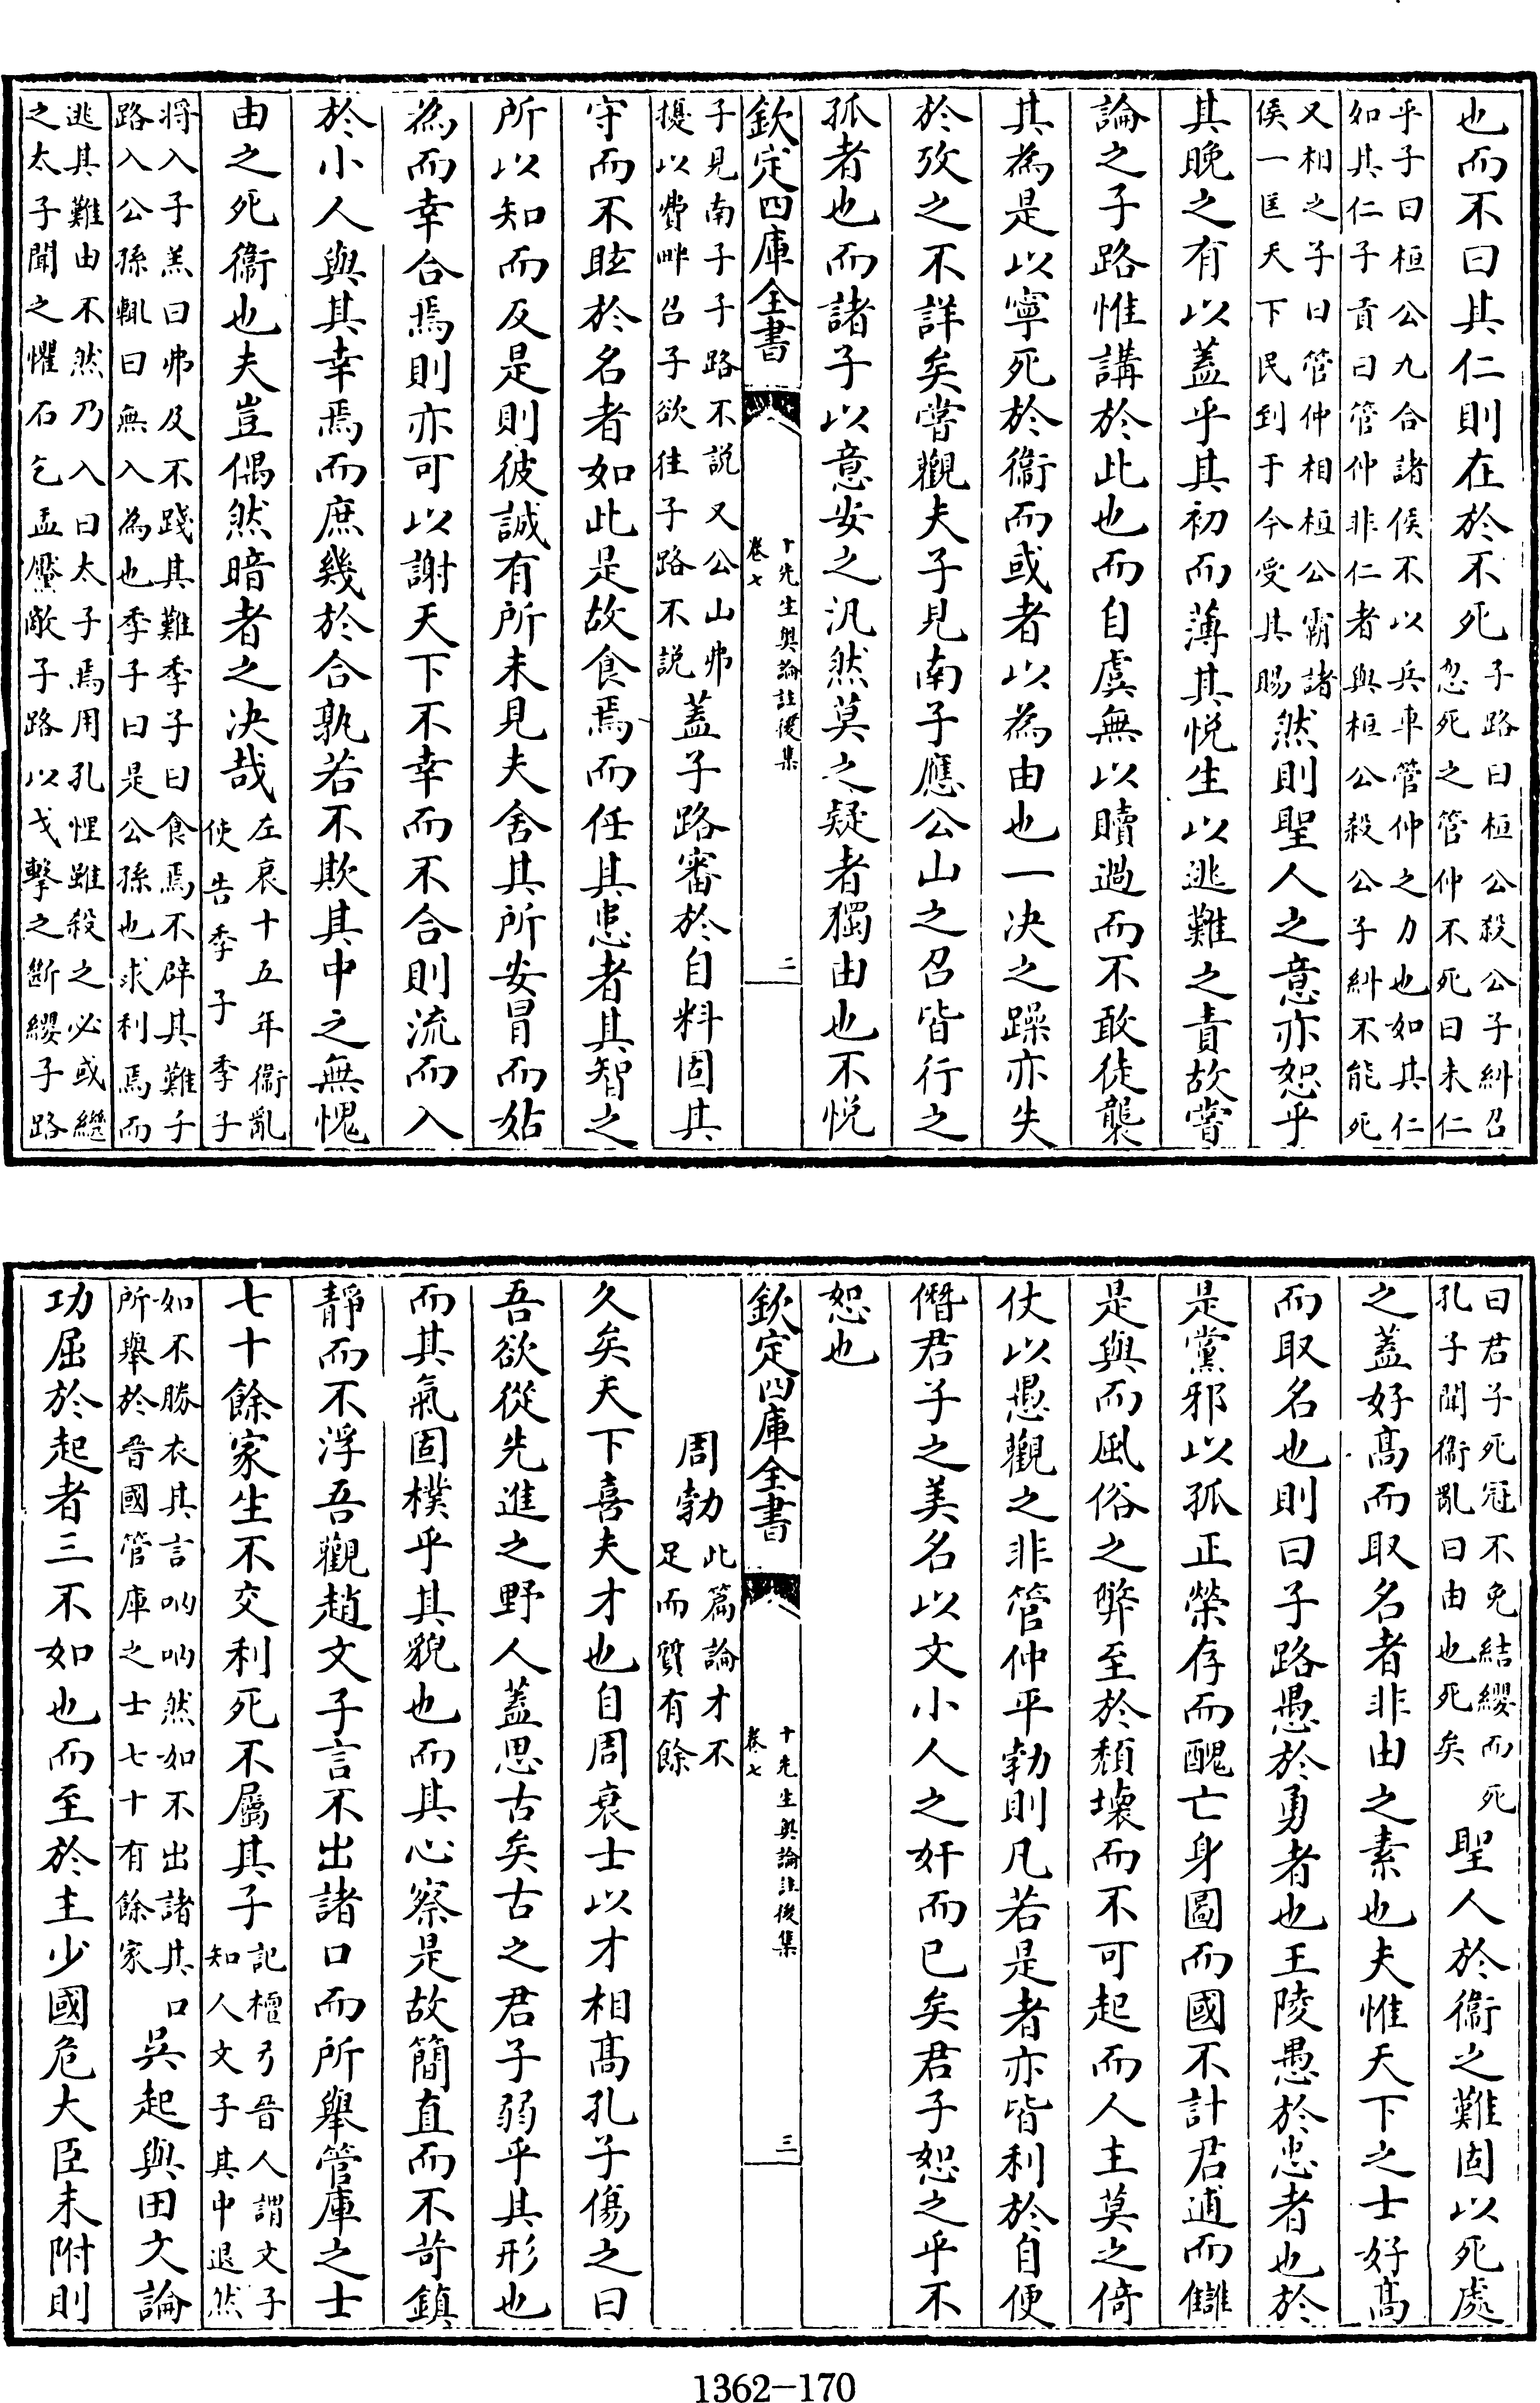 也而不曰其仁則在於不死子路曰桓公殺公子糾召
忽死之管仲不死曰未仁
乎子曰桓公九合諸侯不以兵車管仲之力也如其仁
如其仁子貢曰管仲非仁者與桓公殺公子糾不能死
又相之子曰管仲相桓公霸諸
侯一匡天下民到于今受其賜然則聖人之意亦恕乎
其晚之有以蓋乎其初而薄其悦生以逃難之責故嘗
論之子路惟講於此也而自虞無以贖過而不敢徒襲
其為是以寧死於衞而或者以為由也一决之躁亦失
於攷之不詳矣嘗觀夫子見南子應公山之召皆行之
孤者也而諸子以意安之汎然莫之疑者獨由也不悦
欽定四庫全書
十先生奥論註後集
卷七
二
子見南子子路不説又公山弗
擾以費畔召子欲往子路不説蓋子路審於自料固其
守而不眩於名者如此是故食焉而任其患者其智之
所以知而反是則彼誠有所未見夫舍其所安冒而姑
為而幸合焉則亦可以謝天下不幸而不合則流而入
於小人與其幸焉而庶幾於合孰若不欺其中之無愧
由之死衞也夫豈偶然暗者之决哉左哀十五年衞亂
使告季子季子
將入子羔曰弗及不踐其難季子曰食焉不辟其難子
路入公孫輒曰無入為也季子曰是公孫也求利焉而
逃其難由不然乃入曰太子焉用孔悝雖殺之必或繼
之太子聞之懼石乞盂黶敵子路以戈擊之斷纓子路
曰君子死冠不免結纓而死
孔子聞衞亂曰由也死矣聖人於衞之難固以死處
之蓋好髙而取名者非由之素也夫惟天下之士好髙
而取名也則曰子路愚於勇者也王陵愚於忠者也於
是黨邪以孤正榮存而醜亡身圖而國不計君逋而讎
是與而風俗之弊至於頽壞而不可起而人主莫之倚
仗以愚觀之非管仲平勃則凡若是者亦皆利於自便
僭君子之美名以文小人之奸而已矣君子恕之乎不
恕也
欽定四庫全書
十先生奥論註後集
卷七
三
周勃此篇論才不
足而質有餘
久矣天下喜夫才也自周衰士以才相髙孔子傷之曰
吾欲從先進之野人蓋思古矣古之君子弱乎其形也
而其氣固樸乎其貌也而其心察是故簡直而不苛鎮
靜而不浮吾觀趙文子言不出諸口而所舉管庫之士
七十餘家生不交利死不屬其子記檀弓晉人謂文子
知人文子其中退然
如不勝衣其言吶吶然如不出諸其口
所舉於晉國管庫之士七十有餘家吳起與田文論
功屈於起者三不如也而至於主少國危大臣未附則
1362-170